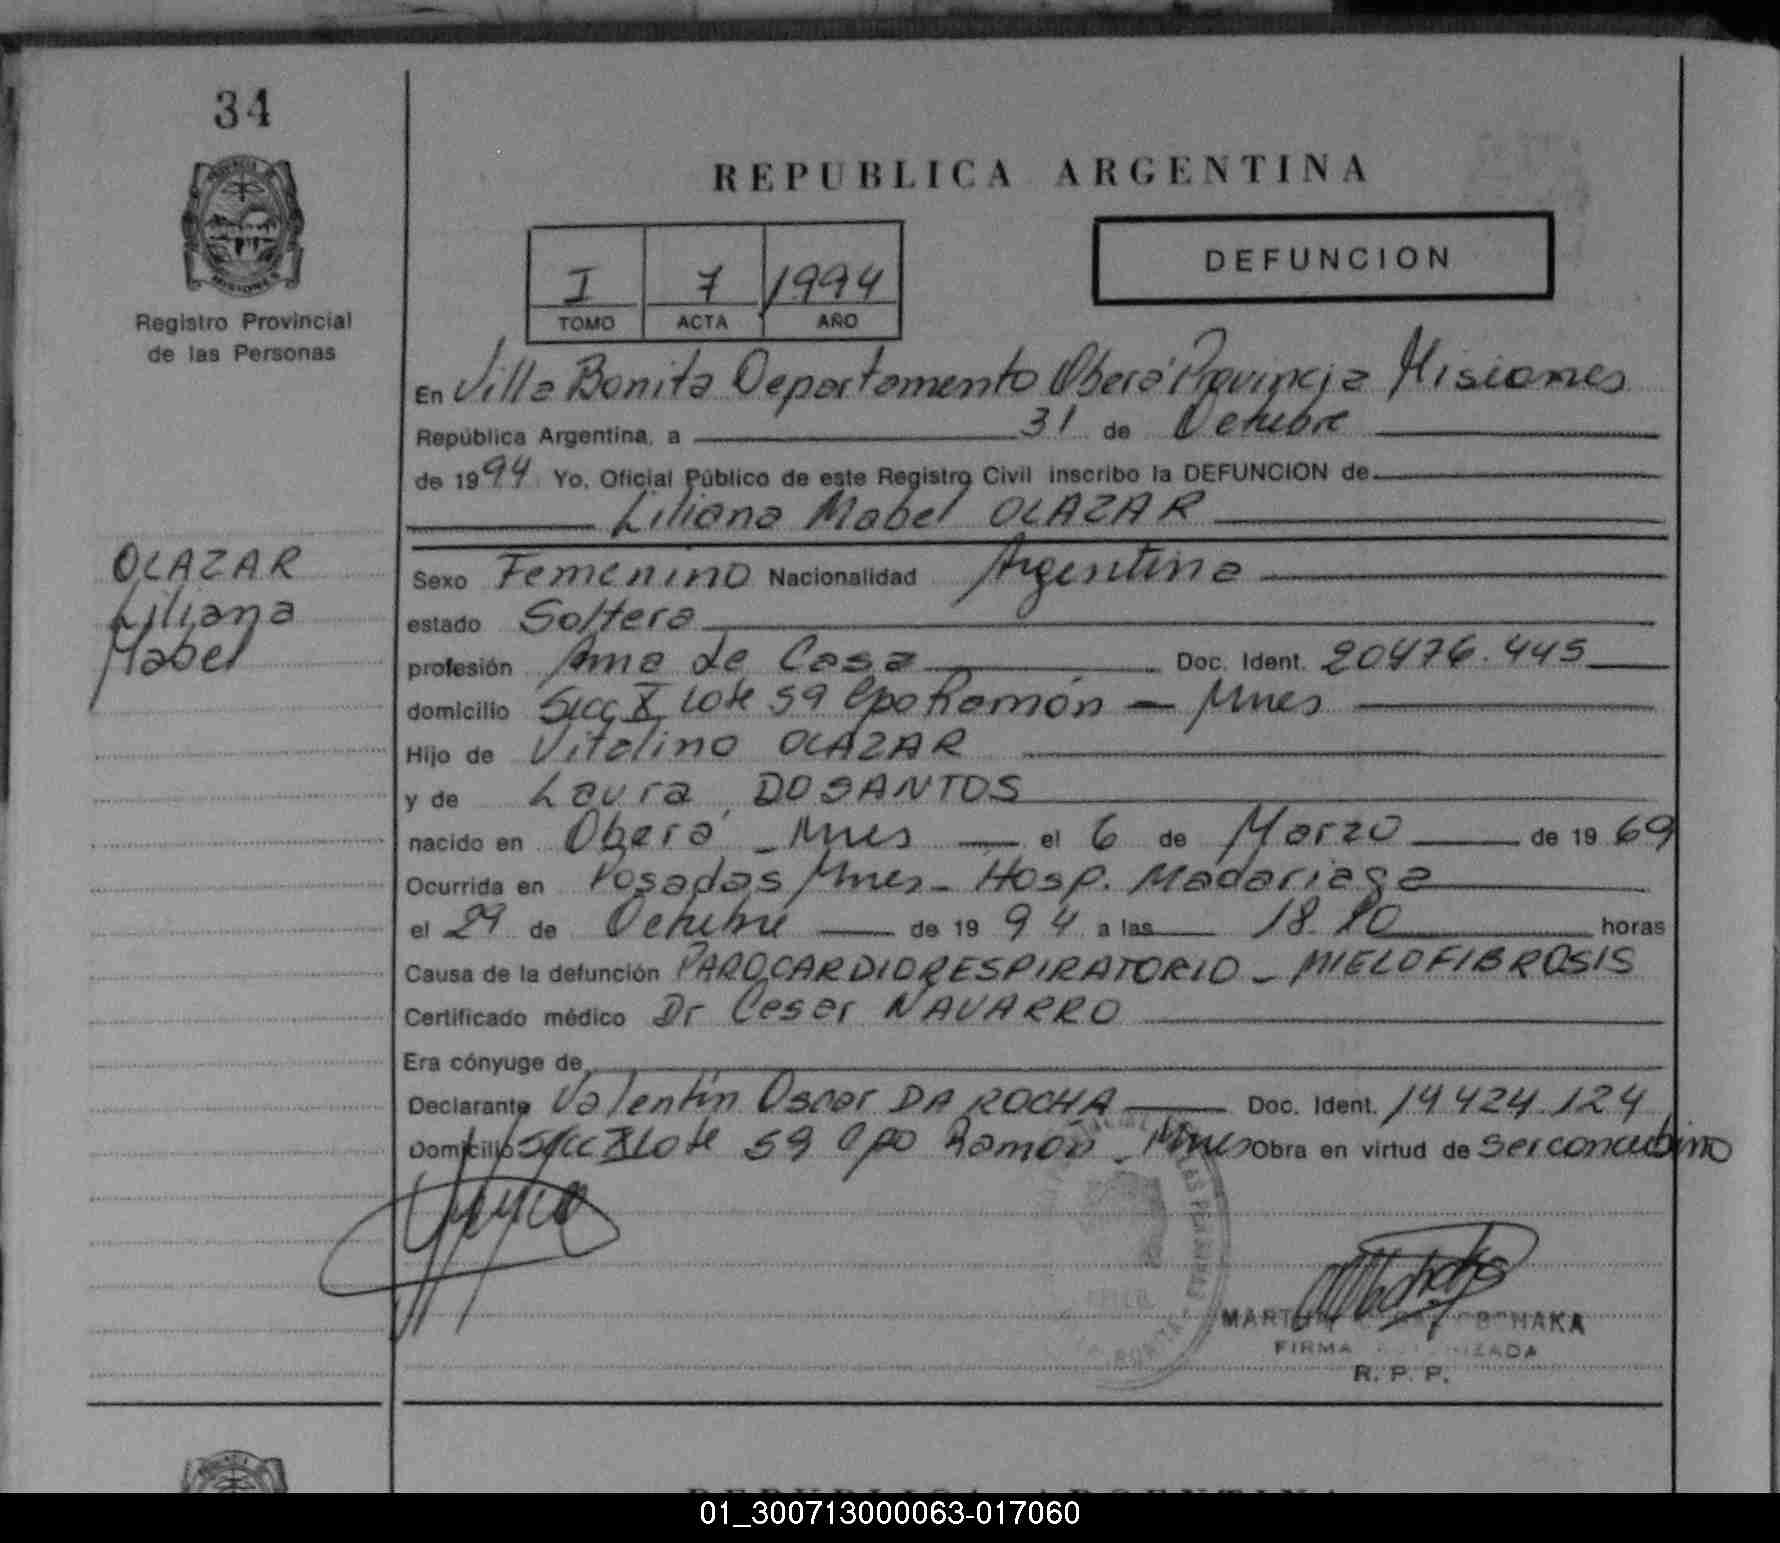 34
Registro Provincial
de las Personas
REPUBLICA ARGENTINA
I 7 1994
TOMO ACTA AÑO
DEFUNCION
En Villa Bonita Departamento Oberá Provincia Misiones
República Argentina, a 31 de Octubre
de 1994 Yo, Oficial Público de este Registro Civil inscribo la DEFUNCION de
Liliana Mabel OLAZAR
OLAZAR
Liliana
Mabel
Sexo Femenino Nacionalidad Argentina
estado Soltera
profesión Ama de Casa Doc. Ident. 20476.445
domicilio Secc X Lote 59 Cpo Ramón - Mnes
Hijo de Vitalino OLAZAR
y de Laura DOSANTOS
nacido en Oberá - Mnes el 6 de Marzo de 1969
Ocurrida en Posadas Mnes - Hosp. Madariaga
el 29 de Octubre de 1994 a las 18.10 horas
Causa de la defunción PAROCARDIORESPIRATORIO - MIELOFIBROSIS
Certificado médico Dr Cesar NAVARRO
Era cónyuge de
Declarante Valentin Oscar DA ROCHA Doc. Ident. 14424.124
Domicilio Secc X Lote 59 Cpo Ramón - Mnes Obra en virtud de ser concubino
FIRMA
R. P. P.
REPUBLICA ARGENTINA
01_300713000063-017060